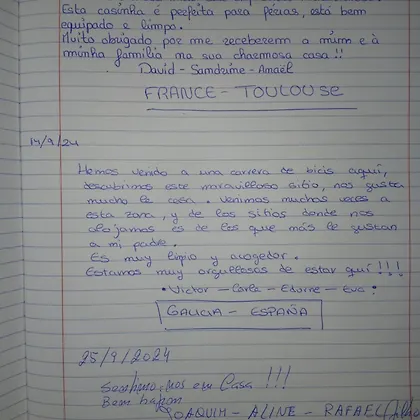 Esta casinha é perfeita para férias, está bem
equipado e limpo.
Muito obrigado por me receberem a mim e à
minha família na sua charmosa casa !!
David - Sandrine - Amaël
FRANCE - TOULOUSE
14/9/24
Hemos venido a una carrera de bicis aquí,
descubrimos este maravilloso sitio, nos gusta
mucho la casa. Venimos muchas veces a
esta zona, y de los sitios donde nos
alojamos es de los que más le gustan
a mi padre.
Es muy limpio y acogedor.
Estamos muy orgullosas de estar quí !!!
• Victor - Carla - Edurne - Eva •
GALICIA - ESPAÑA
25/9/2024
em Casa !!!
Bem
JOAQUIM - ALINE - RAFAEL